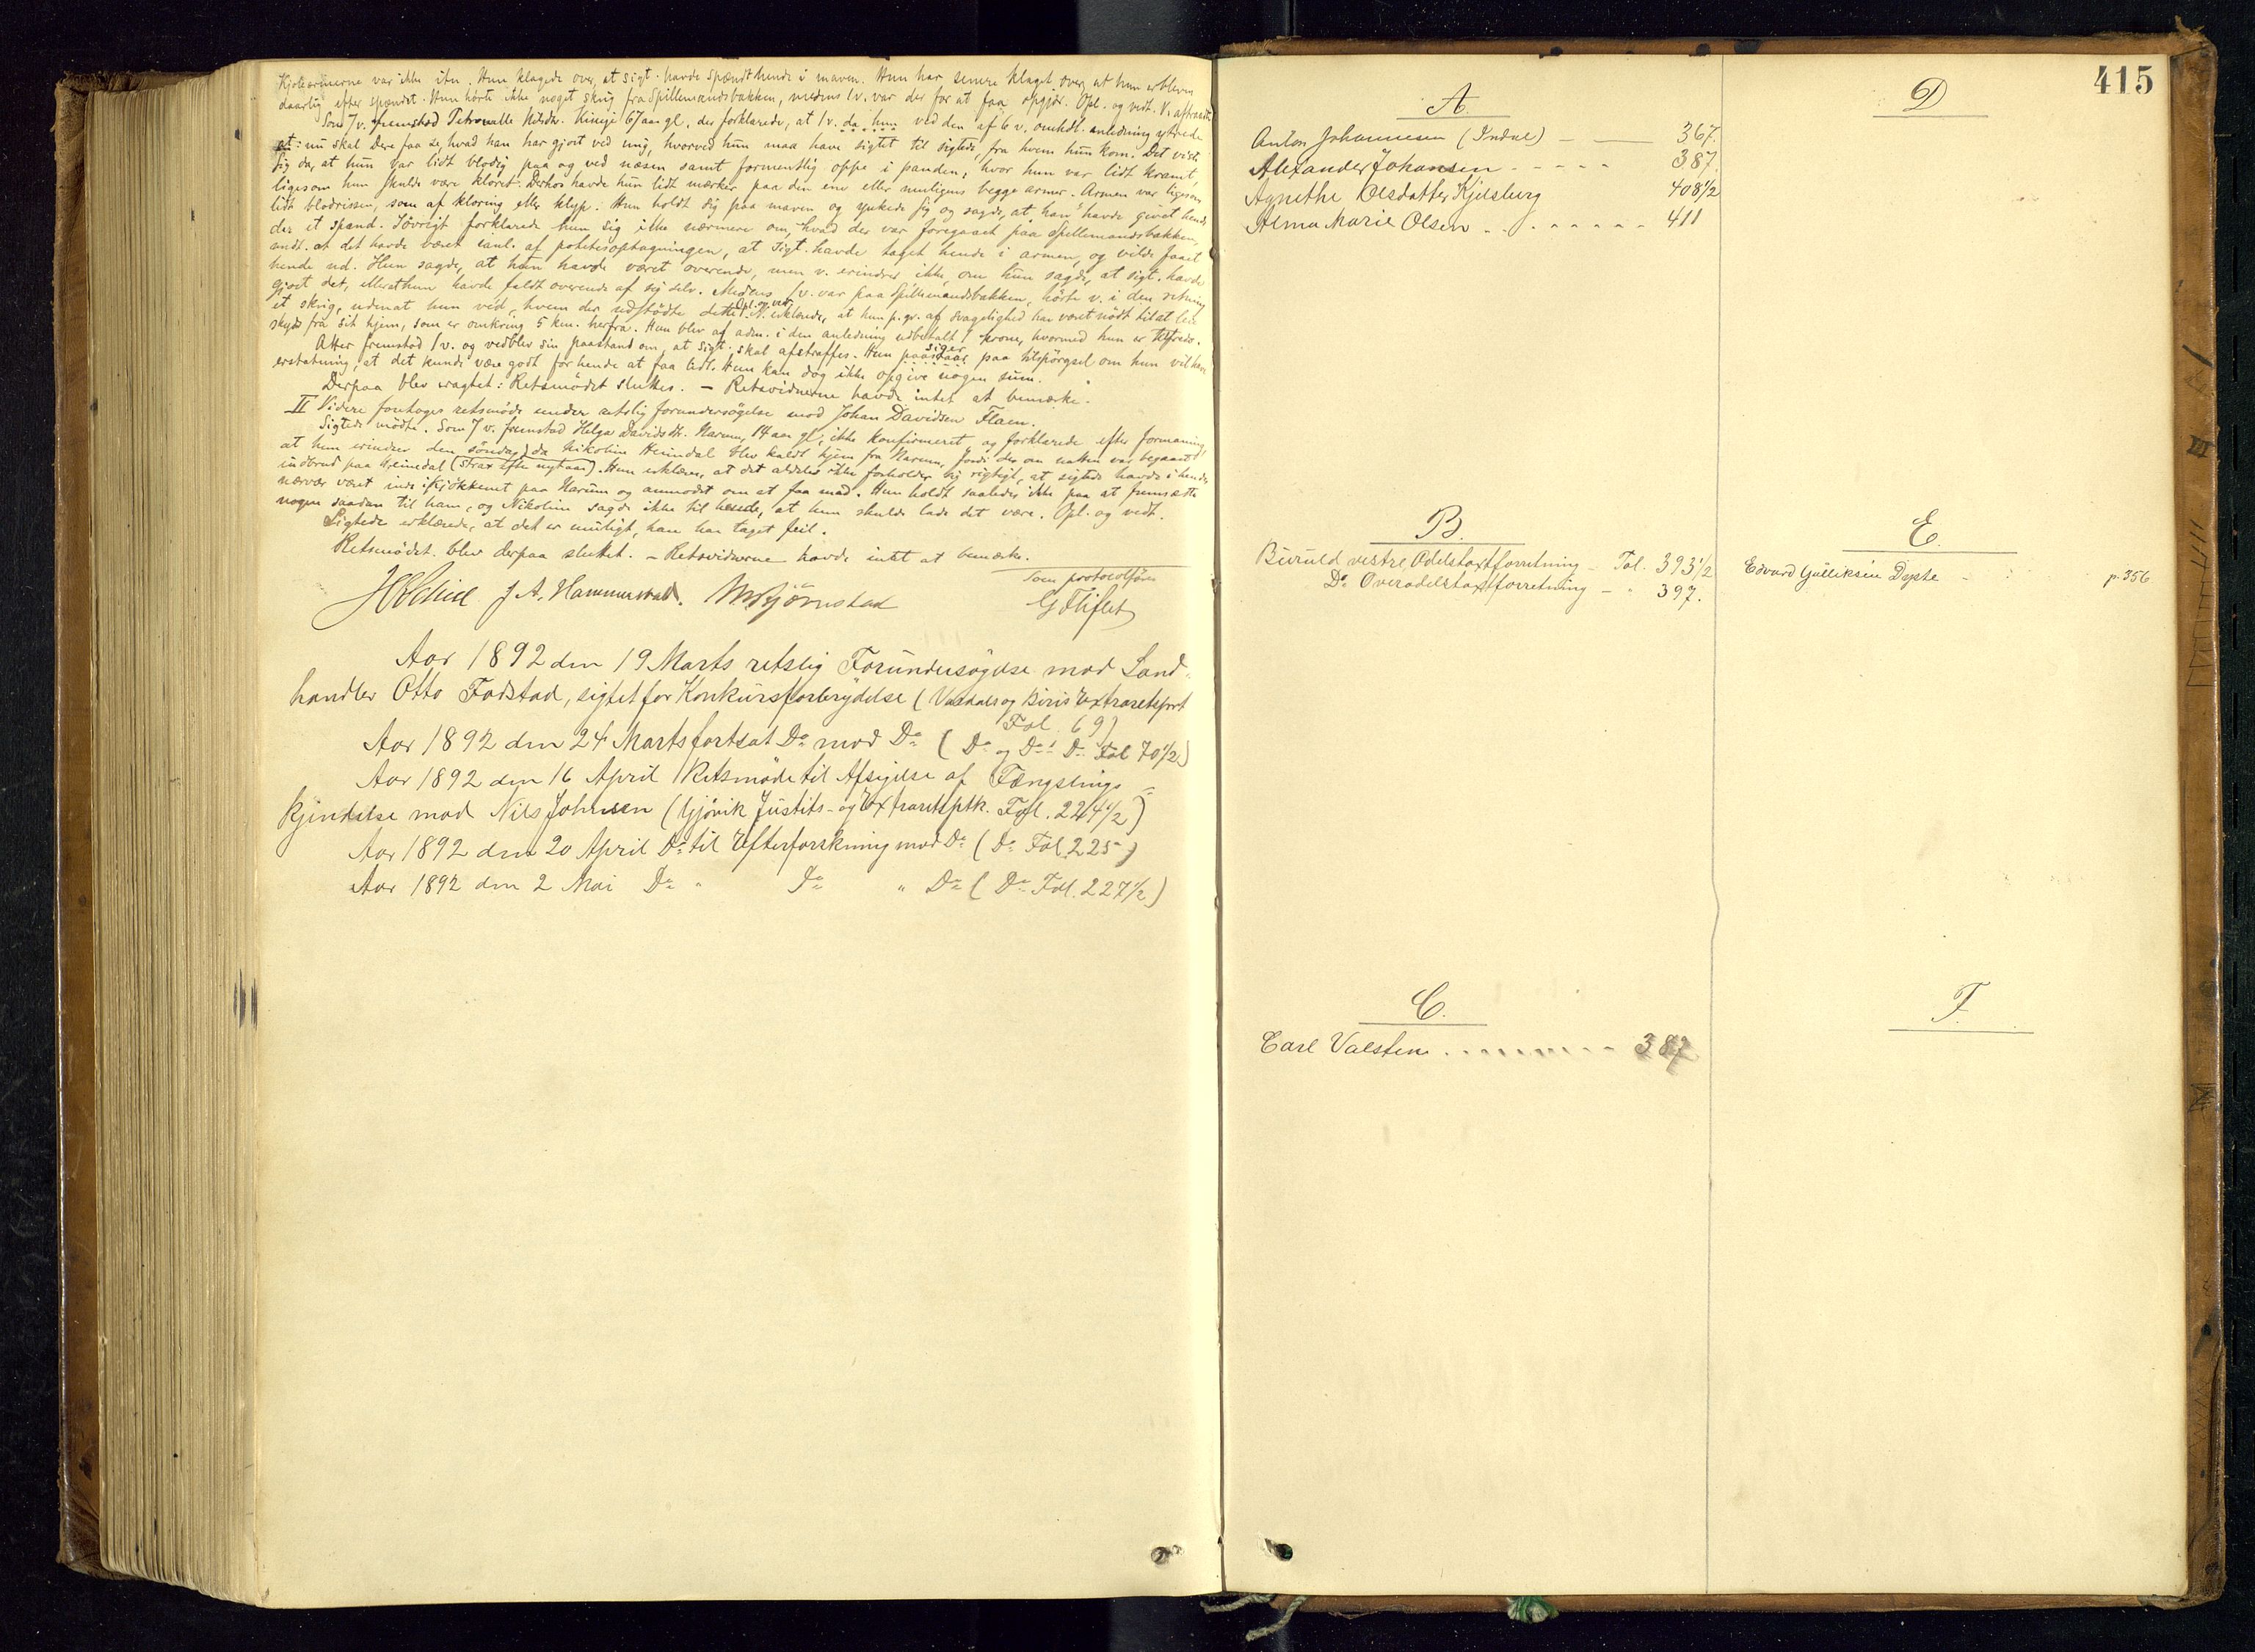 Kjoleærmerne var ikke itu. Hun klagede over, at sigt. havde spændt hende i maven. Hun har senere klaget over, at hun er bleven
daarlig efter spændet. Hun hørte ikke noget skrig fra Spillemandsbakken, medens 1 v. var der for at faa opgjør. Opl. og vedt. V. aftraadte.
Som 7 v. fremstod Petronelle Nilsdtr. 67 aar gl., der forklarede, at 1 v. da hun ved den af 6 v. omhdl. anledning ytrede
at: nu skal Dere faa se, hvad han har gjort ved mig, hvorved hun maa have sigtet til sigtede, fra hvem hun kom. Det viste
sig da, at hun var lidt blodig paa og ved næsen samt formentlig oppe i panden, hvor hun var lidt kramt,
ligesom hun skulde være kloret. Derhos havde hun lidt mærker paa den ene eller muligens begge armer. Armen var ligesom
lidt blodrissen, som af kloring eller klyp. Hun holdt sig paa maven og ynkede sig og sagde, at "han" havde givet hende
der et spænd. Iøvrigt forklarede hun sig ikke nærmere om, hvad der var foregaaet paa Spillemandsbakken,
undt. at det havde været i anl. af potetesoptagningen, at sigt. havde taget hende i armen, og vilde faaet
hende ud. Hun sagde, at hun havde været overende, men v. erindrer ikke, om hun sagde, at sigt. havde
gjort det, eller at hun havde faldt overende af sig selv. Medens 1 v. var paa Spillemandsbakken, hørte v. i den retning
et skrig, uden at hun ved, hvem der udstødte dette. Opl. og vedt. V. erklærede, at hun p. gr. af svagelighed har været nødt til at leie
skyds fra sit hjem, som er omkring 5 km. herfra. Hun blev af adm. i den anledning udbetalt 1 krone, hvormed hun er tilfreds.
Atter fremstod 1 v. og vedblev sin paastand om, at sigt. skal afstraffes. Hun paastaar siger paa tilspørgsel om hun vil have
erstatning, at det kunde være godt for hende at faa lidt. Hun kan dog ikke opgive nogen sum.
Derpaa blev eragtet: Retsmødet sluttes. – Retsvidnerne havde intet at bemærke.
II Videre foretoges retsmøde under retslig forundersøgelse mod Johan Davidsen Flaen.
Sigtede mødte. Som 7 v. fremstod Helga Davidsdtr. Narum, 14 aar gl., ikke konfirmeret, og forklarede efter formaning,
at hun erindrer den søndag, da Nikoline Heimdal blev kaldt hjem fra Narum, fordi der om natten var begaaet
indbrud paa Heimdal (strax efter nytaar). Hun erklærer, at det aldeles ikke forholder sig rigtigt, at sigtede havde i hendes
nærvær været inde i kjøkkenet paa Narum og anmodet om at faa mad. Hun holdt saaledes ikke paa at fremsætte
nogen saadan til ham, og Nikoline sagde ikke til hende, at hun skulde lade det være. Opl. og vedt.
Sigtede erklærede, at det er muligt, han har taget feil.
Retsmødet blev derpaa sluttet. – Retsvidnerne havde intet at bemærke.
Som protocolfører
J. A. Hammerstad. M Bjørnstad G Fliflet
Aar 1892 den 19 Marts retslig Forundersøgelse mod Land-
handler Otto Fodstad, sigtet for Konkursforbrydelse (Vardals og Biris Extraretsprt
Fol. 69)
Aar 1892 den 24 Marts fortsat Do mod Do (Do og Dos Do Fol 70 1/2)
Aar 1892 den 16 April Retsmøde til Afsigelse af Fængslings-
kjendelse mod Nils Johnsen (Gjøvik Justits- og Extraretsptk. Fol. 224 1/2)
Aar 1892 den 20 April Do til Efterforskning mod Do (Do Fol 225)
Aar 1892 den 2 Mai Do " Do " Do (Do Fol. 227 1/2)
415
A.
Anton Johannesen (Indal) – — 367.
Alexander Johansen - - - - 387.
Agnethe Olsdatter Kjelsberg 408 1/2
Alma Marie Olsen - - - - - - - 411
B.
Buruld vestre, Odelstaxtforretning – Fol. 393 1/2
Do Overodelstaxtforretning – " 397.
C.
Carl Valsten . . . . . . . . 387
D
E.
Edvard Gulliksen Dypte – : p. 356
F.